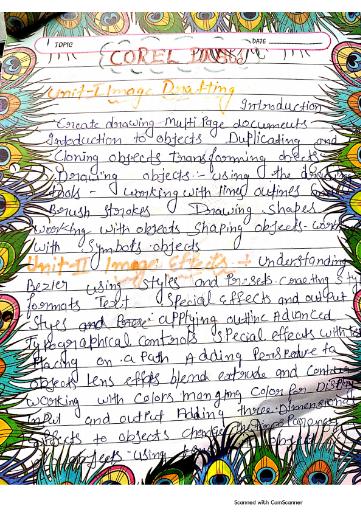 TOPIC
DATE
COREL
Unit-I Image Drafting
Introduction
Create drawing - Multi Page documents
Introduction to objects Duplicating and
Cloning objects transforming
Drawing objects :- using the drawing
tools - working with lines outlines
Brush Strokes Drawing Shapes
working with objects Shaping objects - work
with Symbols objects
Unit-II Image Effects :- Understanding
Bezier using Styles and creating
formats Text Special Effects and output
Styles and applying outline Advanced
Typographical controls Special effects with
Placing on a path Adding to
objects Lens blend extrude and
working with colors color for
and output Adding three
to objects
objects using
Scanned with CamScanner